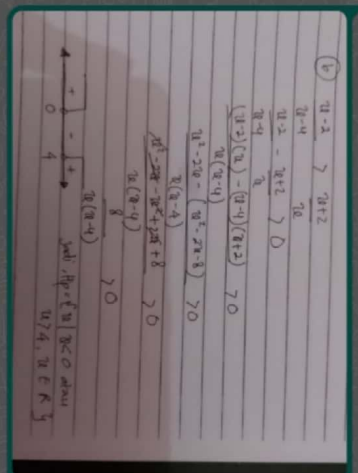 b) x-2/x-4 > x+2/x
x-2/x-4 - x+2/x > 0
(x-2)(x) - (x-4)(x+2)/x(x-4) > 0
x²-2x - (x²-2x-8)/x(x-4) > 0
x²-2x-x²+2x+8/x(x-4) > 0
8/x(x-4) > 0
+ - +
0 4
Jadi, Hp = { x | x < 0 atau
x > 4, x ∈ R }